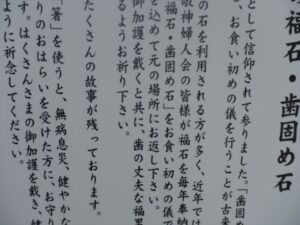 福石・歯固め石
として信仰されて参りました。「歯固め
、お食い初めの儀を行うことが古来
の石を利用される方が多く、近年では
敬神婦人会の皆様が福石を毎年奉納
福石・歯固め石」をお食い初めの儀で
込めて元の場所にお返し下さい。
御加護を戴くと共に、歯の丈夫な福
るようお祈り下さい。
たくさんの故事が残っております。
「箸」を使うと、無病息災、健やかな
りのおはらいを受けた方に、お守り
す。はくさんさまの御加護を戴き、健
ように祈念してください。